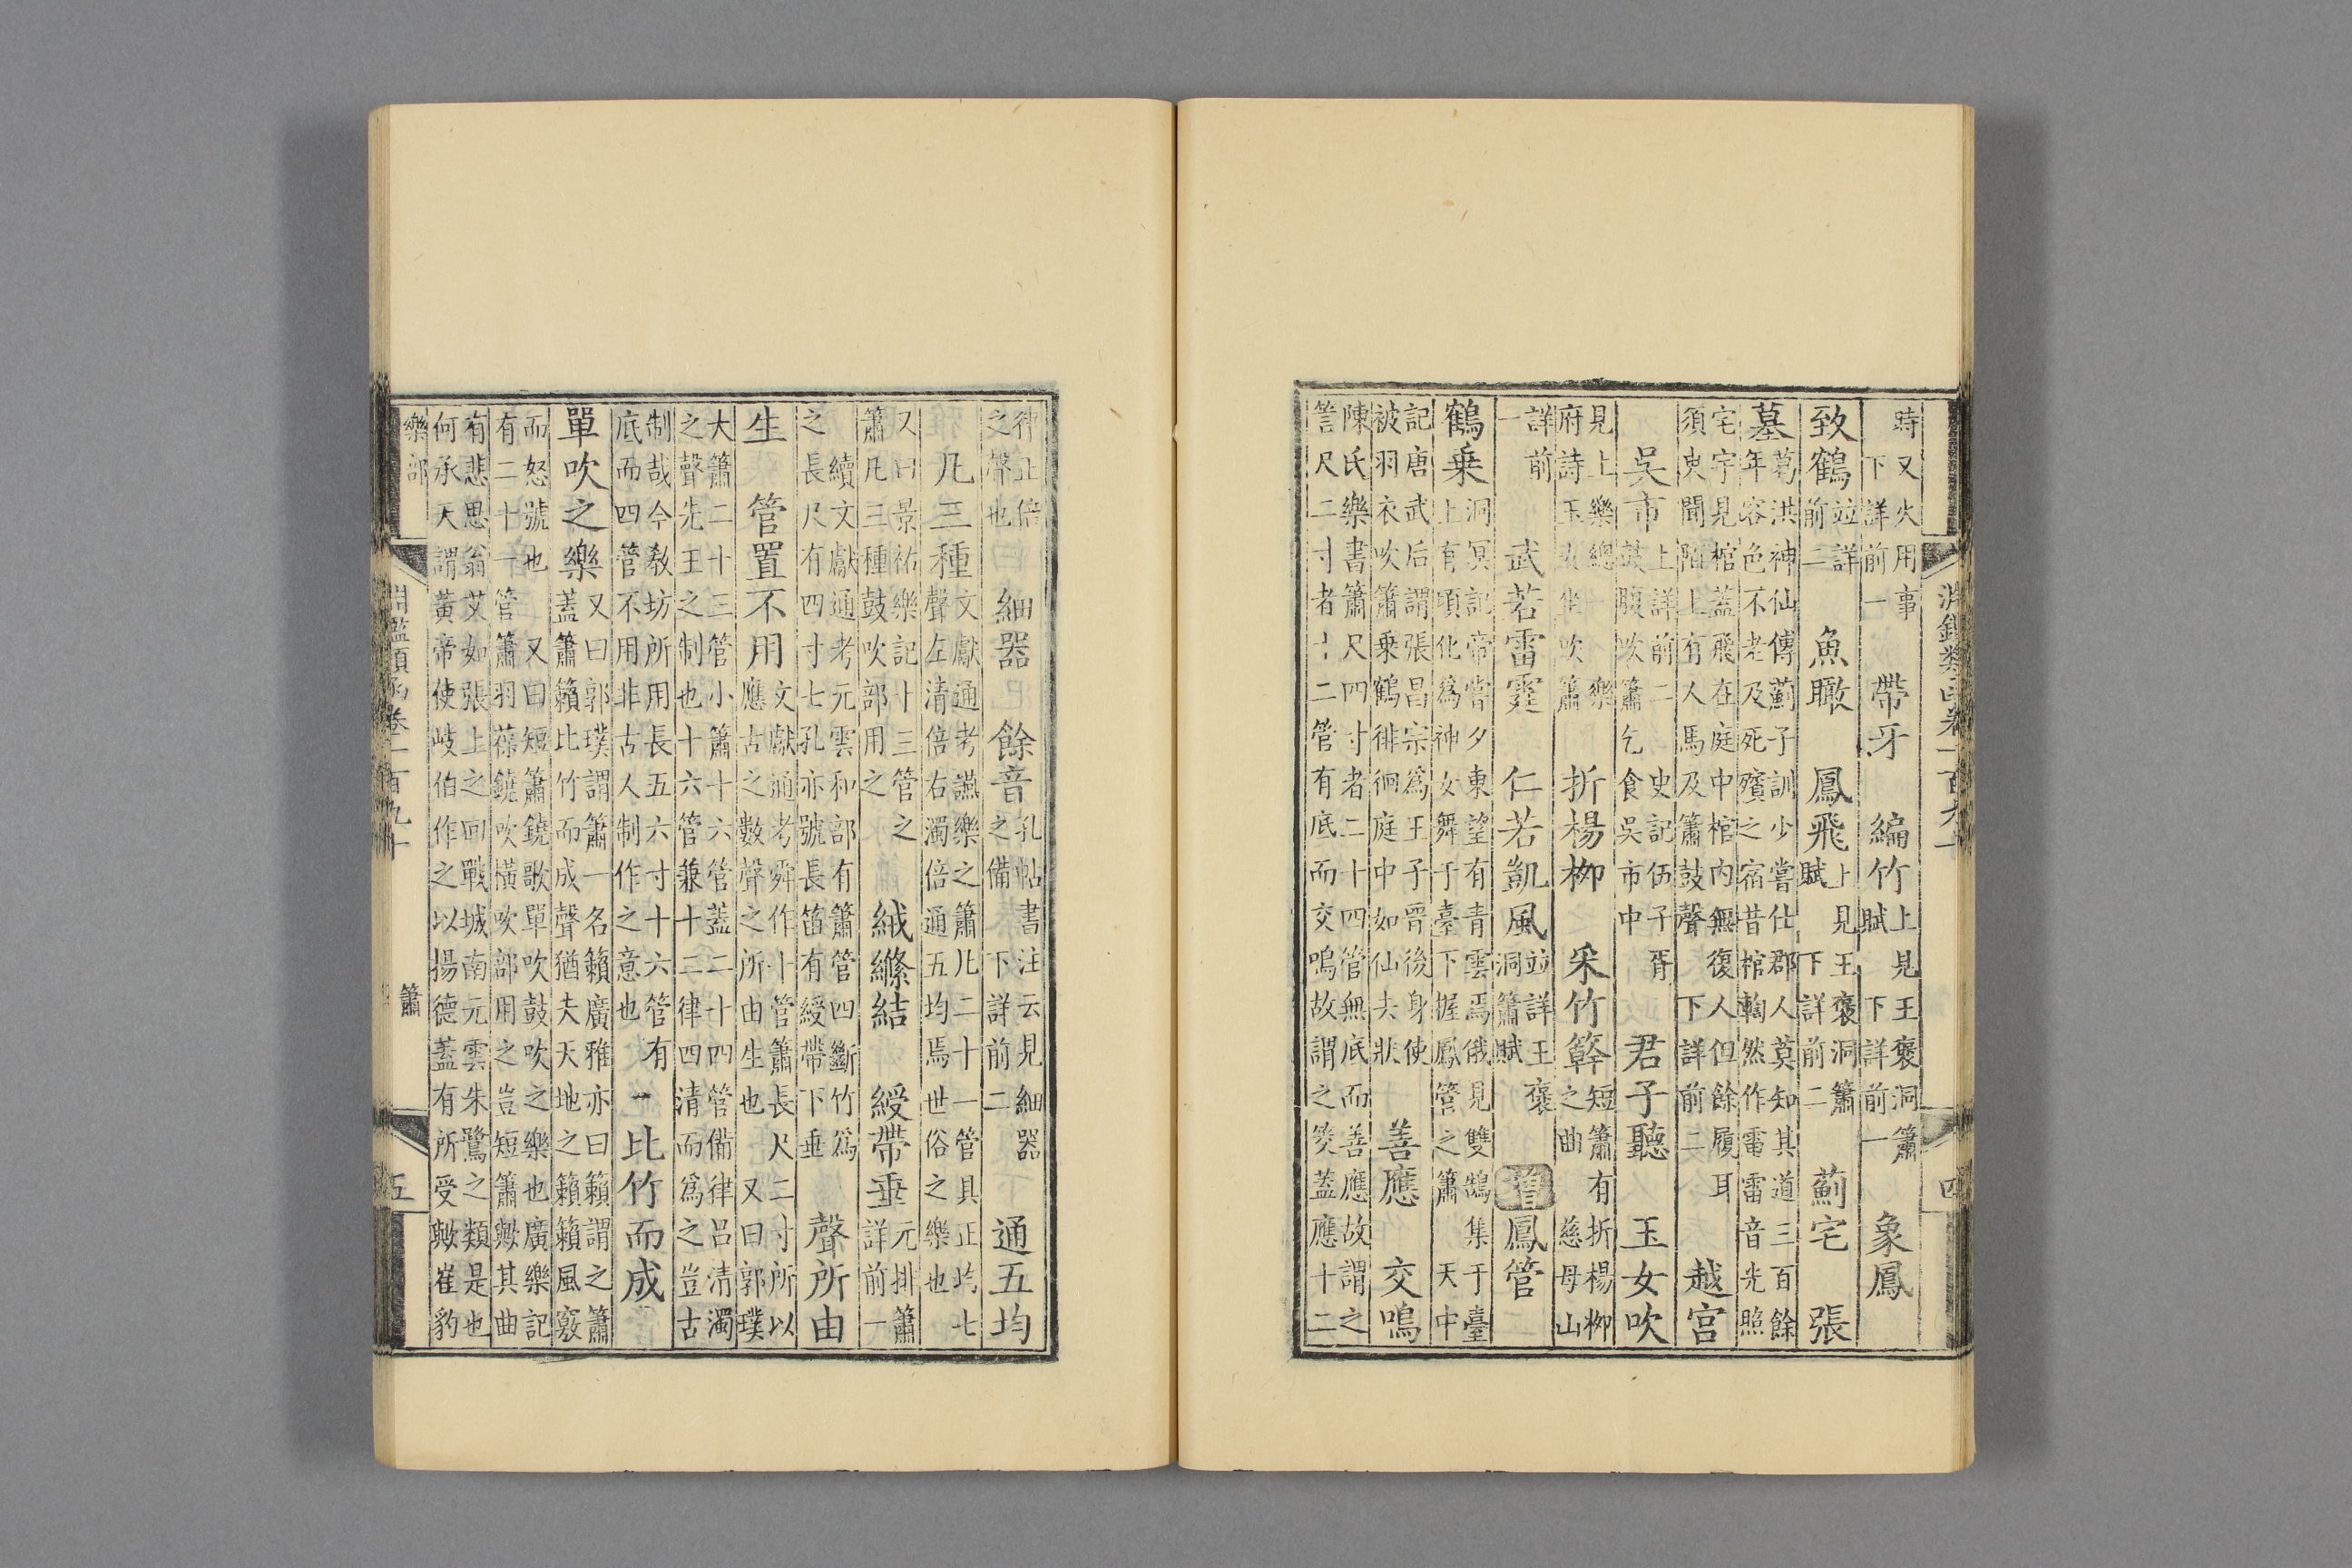 時又火用事下詳前一帶牙編竹上見王褒洞簫賦下詳前一象鳳
致鶴並詳前二魚瞰鳳飛上見王褒洞簫賦下詳前二薊宅張
墓葛洪神仙傳薊子訓少嘗仕郡人莫知其道三百餘年容色不老及死殯之宿昔棺輷然作雷雷音光照
宅宇見棺蓋飛在庭中棺内無復人但餘履耳須臾聞陌上有人馬及簫鼓聲下詳前二越宫
吳市上詳前二史記伍子胥鼓腹吹簫乞食吳市中君子聽玉女吹
見上樂總一樂府詩玉女坐吹簫折楊柳采竹簳短簫有折楊柳之曲慈母山
詳前一武若雷霆仁若凱風並詳王褒洞簫賦增鳳管
鶴乗洞冥記帝嘗夕東望有青雲焉俄見雙鵠集于臺上有頃化爲神女舞于臺下握鳳管之簫天中
記唐武后謂張昌宗爲王子晉後身使被羽衣吹簫乗鶴徘徊庭中如仙去狀善應交鳴
陳氏樂書簫尺四寸者二十四管無底而善應故謂之尺二寸者十二管有底而交鳴故謂之筊蓋應十二
四
律正倍之聲也細器餘音孔帖書注云見細器之備下詳前二通五均
凡三種文獻通考讌樂之簫凡二十一管具正均七聲左清倍右濁倍通五均焉世俗之樂也
又曰景祐樂記十三管之簫凡三種鼓吹部用之絨縧結綬帶垂元排簫詳前一
續文獻通考元雲和部有簫管四斷竹爲之長尺有四寸七孔亦號長笛有綬帶下垂聲所由
生管置不用文獻通考舜作十管簫長尺二寸所以應古之數聲之所由生也又曰郭璞
大簫二十三管小簫十六管蓋二十四管備律吕清濁之聲先王之制也十六管兼十二律四清而爲之豈古
制哉今敎坊所用長五六寸十六管有底而四管不用非古人制作之意也一比竹而成
單吹之樂又曰郭璞謂簫一名籟廣雅亦曰籟謂之簫蓋簫籟比竹而成聲猶夫天地之籟籟風竅
而怒號也又曰短簫鐃歌單吹鼓吹之樂也廣樂記有二十一管簫羽葆鐃吹橫吹部用之豈短簫歟其曲
有悲思翁艾如張上之回戰城南元雲朱鷺之類是也何承天謂黃帝使岐伯作之以揚德蓋有所受歟崔豹
樂部
淵鑑類函卷一百九十
簫
五